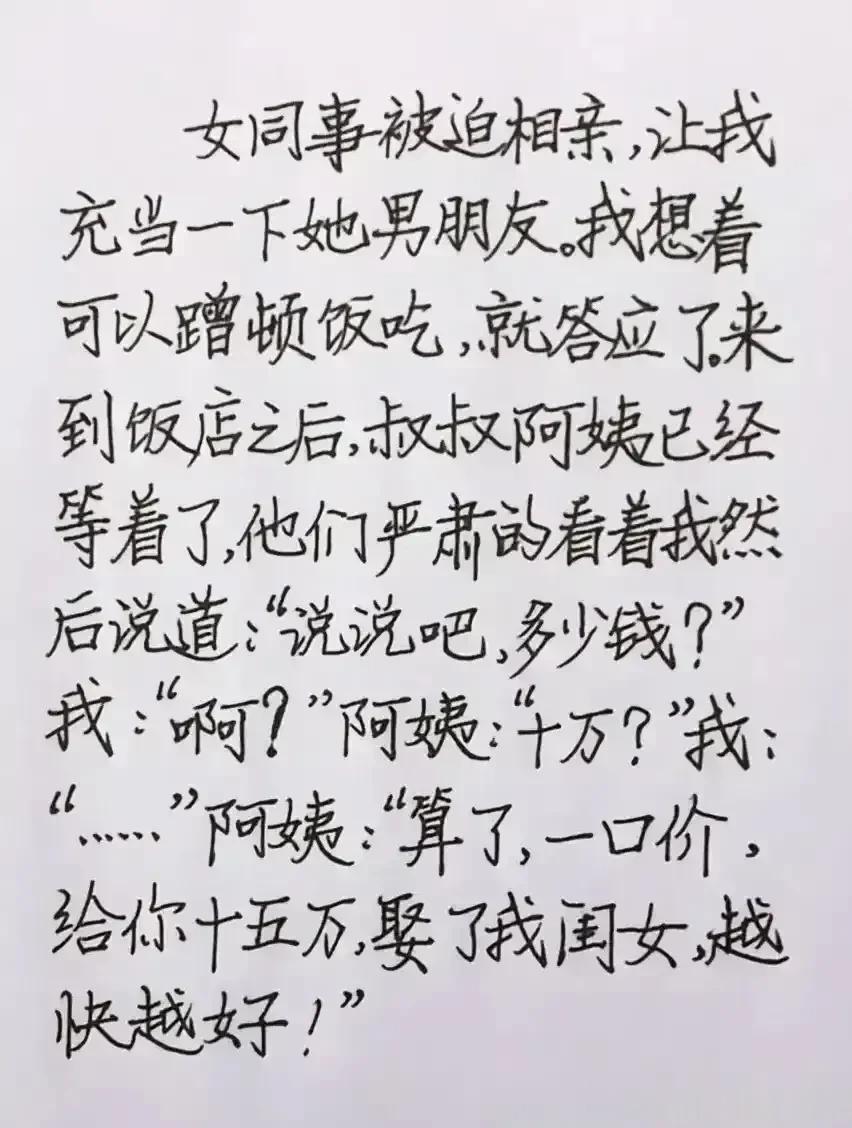 女同事被迫相亲,让我
充当一下她男朋友。我想着
可以蹭顿饭吃,就答应了。来
到饭店之后,叔叔阿姨已经
等着了,他们严肃的看着我然
后说道:“说说吧,多少钱?”
我:“啊?”阿姨:“十万?”我:
“……”阿姨:“算了,一口价,
给你十五万,娶了我闺女,越
快越好!”